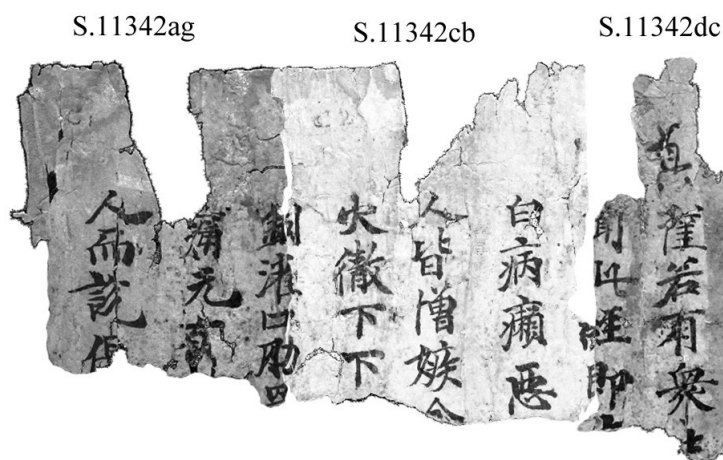 S.11342ag
S.11342cb
S.11342dc
真薩若有衆
聞此經即
白病癩惡
人皆憎嫉
火徹下下
銅灌口肋
痛元
人而説偈